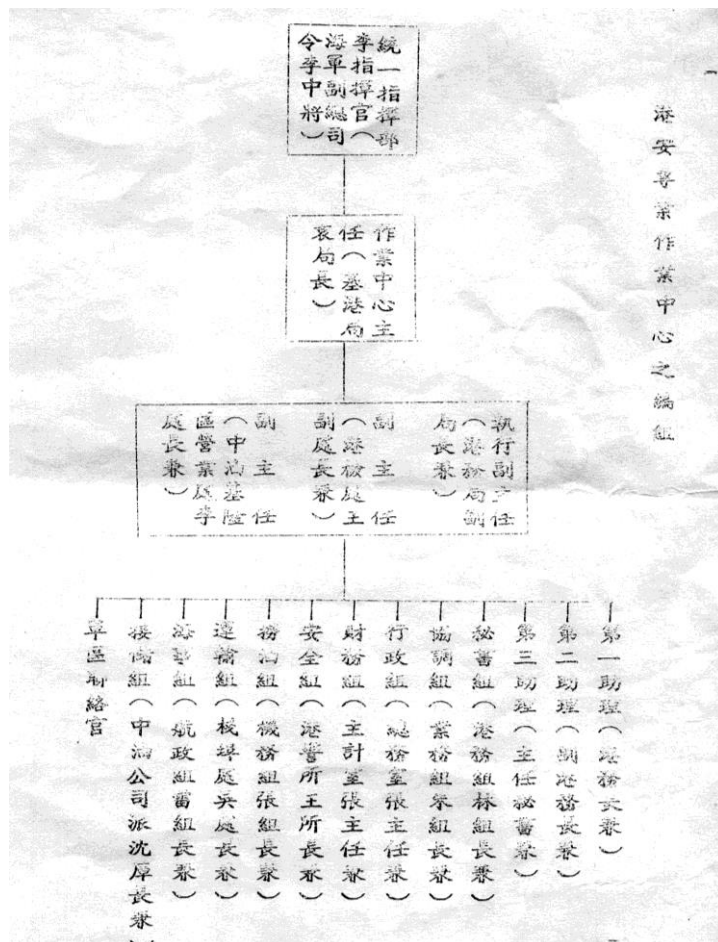 港安專業作業中心之編組
統一指揮部
李指揮官（
海軍副總司
令李中將）
作業中心主
任（基港局
袁局長）
執行副主任
（港務局副
局長兼）
副主任
（港檢處王
副處長兼）
副主任
（中油基隆
區營業處李
處長兼）
第一助理（港務長兼）
第二助理（副港務長兼）
第三助理（主任秘書兼）
秘書組（港務組林組長兼）
協調組（業務組朱組長兼）
行政組（總務室張主任兼）
財務組（主計室張主任兼）
安全組（港警所王所長兼）
撈油組（機務組張組長兼）
運輸組（棧埠處吳處長兼）
海事組（航政組雷組長兼）
接儲組（中油公司派沈厚長兼
軍區聯絡官